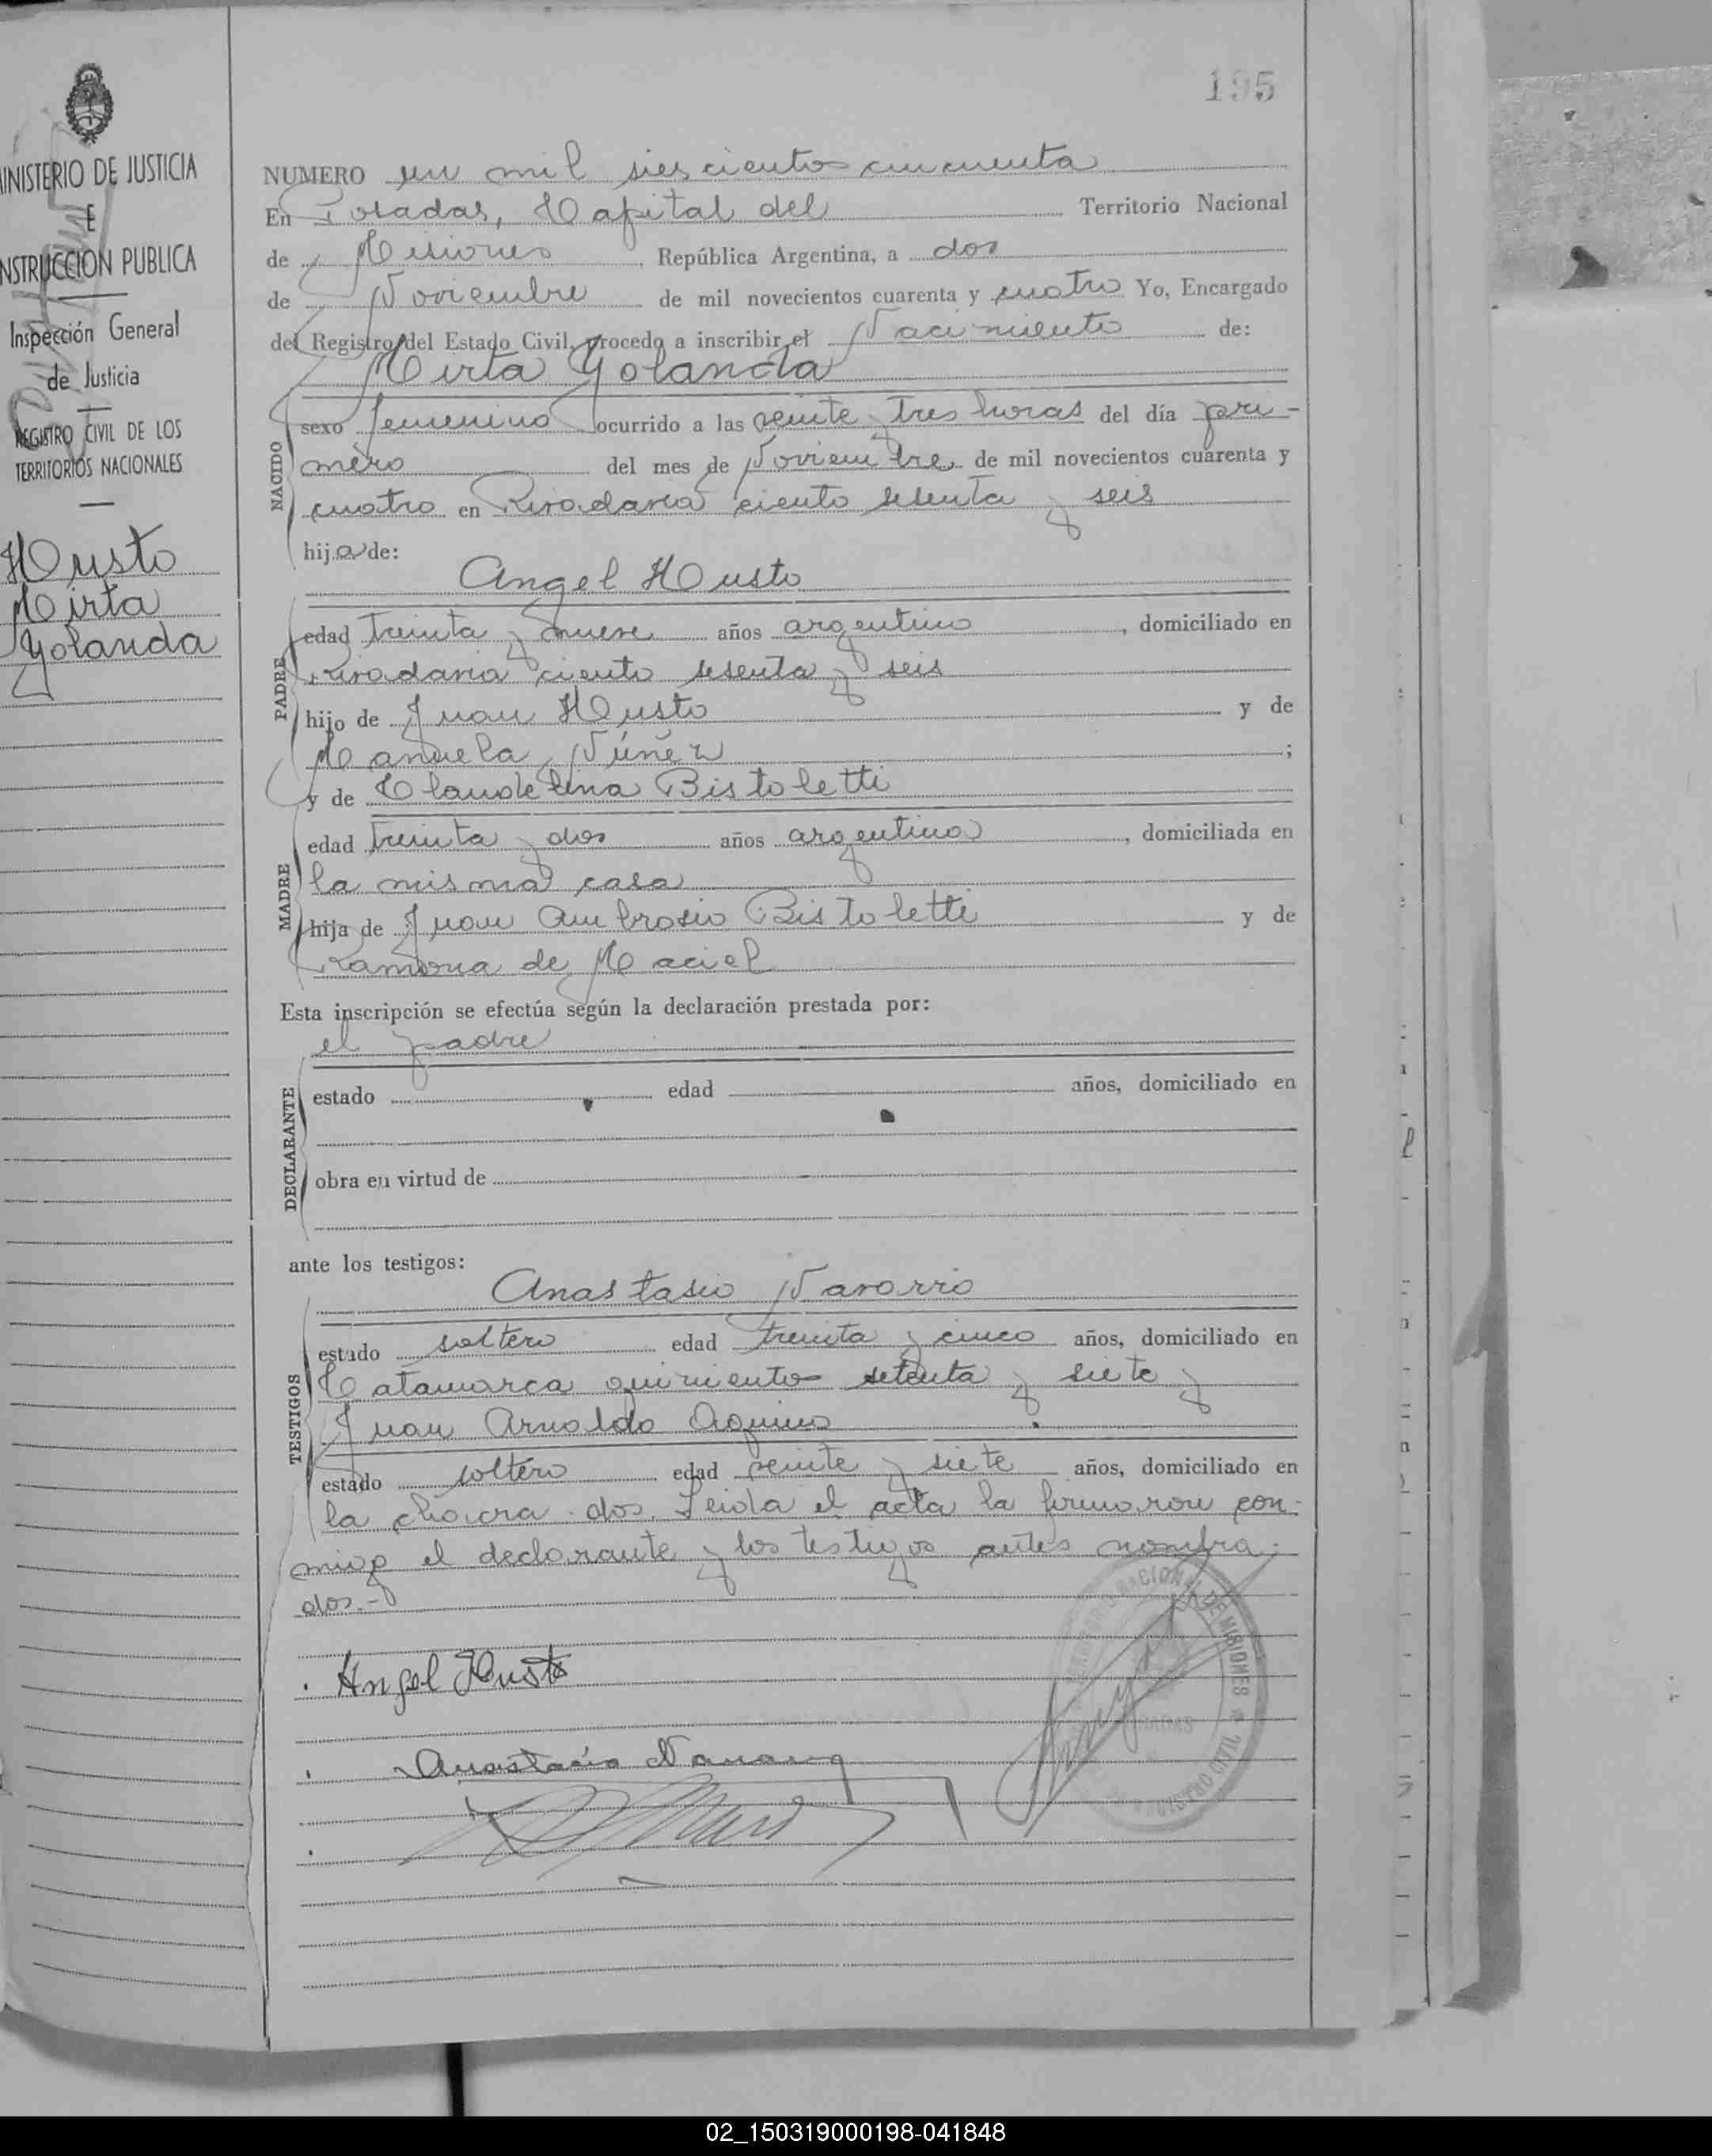 195
MINISTERIO DE JUSTICIA
E
INSTRUCCION PUBLICA
Inspección General
de Justicia
REGISTRO CIVIL DE LOS
TERRITORIOS NACIONALES
Husto
Mirta
Yolanda
NUMERO un mil seiscientos cincuenta
En Posadas, Capital del Territorio Nacional
de Misiones República Argentina, a dos
de Noviembre de mil novecientos cuarenta y cuatro Yo, Encargado
del Registro del Estado Civil, procedo a inscribir el Nacimiento de:
Mirta Yolanda
NACIDO
sexo femenino ocurrido a las veinte y tres horas del día pri-
mero del mes de Noviembre de mil novecientos cuarenta y
cuatro en Rivadavia ciento sesenta y seis
hija de:
Angel Husto
PADRE
edad treinta y nueve años argentino, domiciliado en
Rivadavia ciento sesenta y seis
hijo de Juan Husto y de
Manuela Núñez;
y de Claudelina Bistoletti
MADRE
edad treinta y dos años argentina, domiciliada en
la misma casa
hija de Juan Ambrosio Bistoletti y de
Ramona de Maciel
Esta inscripción se efectúa según la declaración prestada por:
el padre
DECLARANTE
estado edad años, domiciliado en
obra en virtud de
ante los testigos:
Anastasio Navarro
TESTIGOS
estado soltero edad treinta y cinco años, domiciliado en
Catamarca quinientos setenta y siete y
Juan Arnoldo Aquino
estado soltero edad veinte y siete años, domiciliado en
la chacra dos. Leida el acta la firmaron con-
migo el declarante y los testigos antes nombra-
dos.-
Angel Husto
Anastasio Navarro
NACIONAL DE MISIONES
REGISTRO CIVIL
02_150319000198-041848